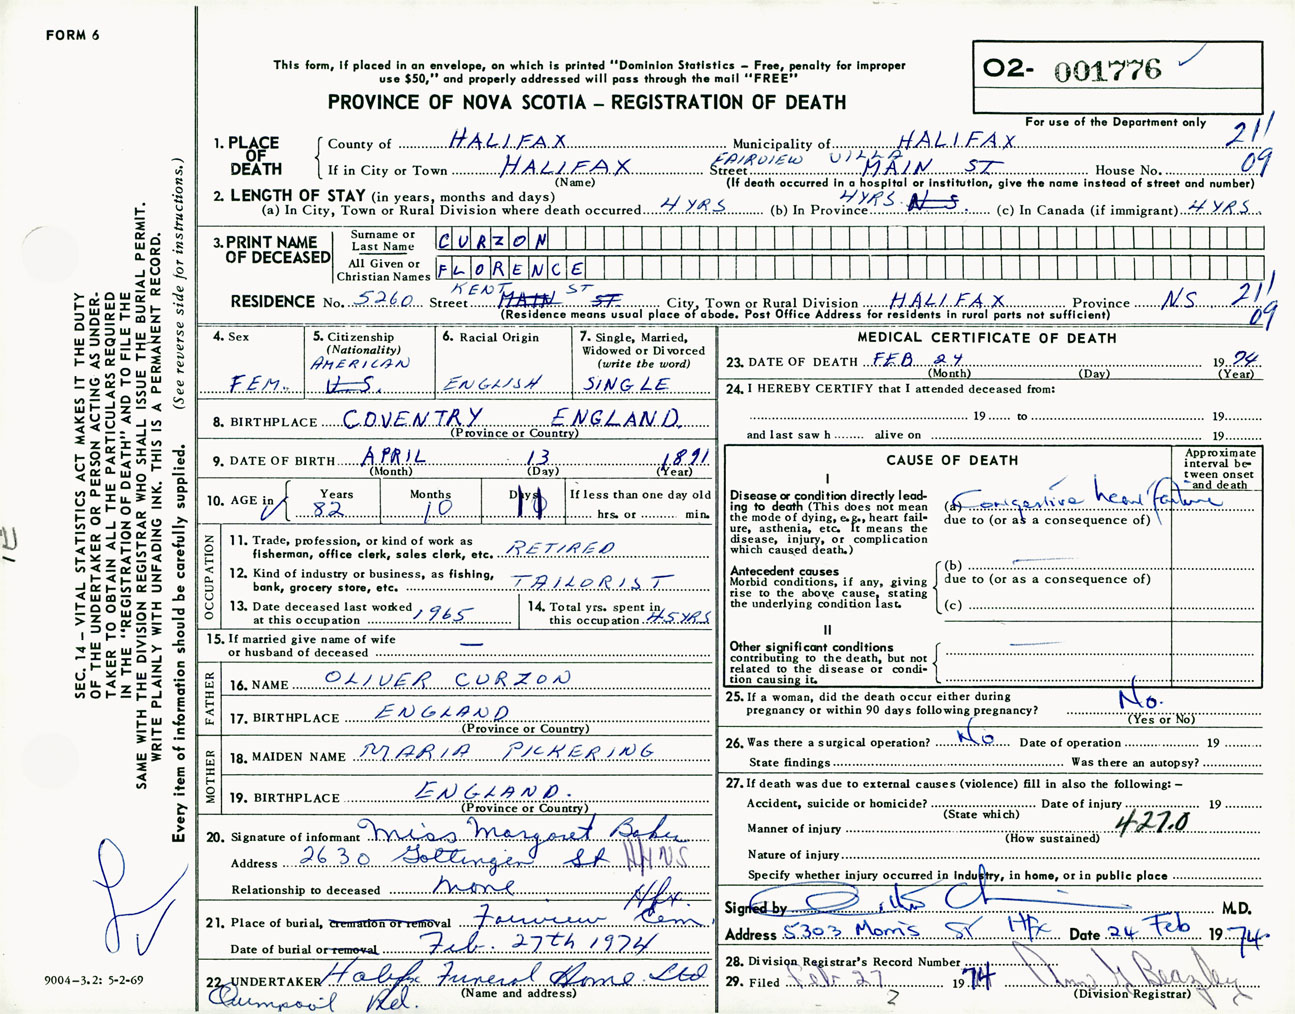 FORM 6
This form, if placed in an envelope, on which is printed "Dominion Statistics – Free, penalty for improper
use $50," and properly addressed will pass through the mail "FREE"
PROVINCE OF NOVA SCOTIA – REGISTRATION OF DEATH
02- 001776
For use of the Department only
211
09
1. PLACE OF DEATH
County of HALIFAX Municipality of HALIFAX
FAIRVIEW VILLA
If in City or Town HALIFAX Street MAIN ST House No.
(Name) (If death occurred in a hospital or institution, give the name instead of street and number)
2. LENGTH OF STAY (in years, months and days)
(a) In City, Town or Rural Division where death occurred 4 YRS (b) In Province 4 YRS N.S. (c) In Canada (if immigrant) 4 YRS.
3. PRINT NAME OF DECEASED
Surname or Last Name CURZON
All Given or Christian Names FLORENCE
KENT ST
RESIDENCE No. 5260 Street MAIN ST City, Town or Rural Division HALIFAX Province NS
(Residence means usual place of abode. Post Office Address for residents in rural parts not sufficient)
211
09
4. Sex
FEM.
5. Citizenship
(Nationality)
AMERICAN
U.S.
6. Racial Origin
ENGLISH
7. Single, Married,
Widowed or Divorced
(write the word)
SINGLE
8. BIRTHPLACE COVENTRY ENGLAND.
(Province or Country)
9. DATE OF BIRTH APRIL 13 1891
(Month) (Day) (Year)
10. AGE in
Years Months Days If less than one day old
82 10 11 hrs. or min.
OCCUPATION
11. Trade, profession, or kind of work as
fisherman, office clerk, sales clerk, etc. RETIRED
12. Kind of industry or business, as fishing,
bank, grocery store, etc. TAILORIST
13. Date deceased last worked
at this occupation 1965
14. Total yrs. spent in
this occupation 45 YRS
15. If married give name of wife
or husband of deceased —
FATHER
16. NAME OLIVER CURZON
17. BIRTHPLACE ENGLAND
(Province or Country)
MOTHER
18. MAIDEN NAME MARIA PICKERING
19. BIRTHPLACE ENGLAND.
(Province or Country)
20. Signature of informant Miss Margaret Baker
Address 2630 Gottingen St HNS
Relationship to deceased none
Hfx.
21. Place of burial, cremation or removal Fairview Cem.
Date of burial or removal Feb. 27th 1974
22. UNDERTAKER Halifx Funeral Home Ltd
(Name and address)
Quinpool Rd.
MEDICAL CERTIFICATE OF DEATH
23. DATE OF DEATH FEB 24 1974
(Month) (Day) (Year)
24. I HEREBY CERTIFY that I attended deceased from:
19 to 19
and last saw h alive on 19
CAUSE OF DEATH
Approximate
interval be-
tween onset
and death
I
Disease or condition directly lead-
ing to death (This does not mean
the mode of dying, e.g., heart fail-
ure, asthenia, etc. It means the
disease, injury, or complication
which caused death.)
(a) Congestive heart failure
due to (or as a consequence of)
Antecedent causes
Morbid conditions, if any, giving
rise to the above cause, stating
the underlying condition last.
(b)
due to (or as a consequence of)
(c)
II
Other significant conditions
contributing to the death, but not
related to the disease or condi-
tion causing it.
25. If a woman, did the death occur either during
pregnancy or within 90 days following pregnancy? No.
(Yes or No)
26. Was there a surgical operation? No Date of operation 19
State findings Was there an autopsy?
27. If death was due to external causes (violence) fill in also the following: –
Accident, suicide or homicide? Date of injury 19
(State which)
Manner of injury 427.0
(How sustained)
Nature of injury
Specify whether injury occurred in Industry, in home, or in public place
Signed by M.D.
Address 5303 Morris St Hfx Date 24 Feb 1974.
28. Division Registrar's Record Number
29. Filed Feb 27 1974
2
(Division Registrar)
SEC. 14 – VITAL STATISTICS ACT MAKES IT THE DUTY
OF THE UNDERTAKER OR PERSON ACTING AS UNDER-
TAKER TO OBTAIN ALL THE PARTICULARS REQUIRED
IN THE "REGISTRATION OF DEATH" AND TO FILE THE
SAME WITH THE DIVISION REGISTRAR WHO SHALL ISSUE THE BURIAL PERMIT.
WRITE PLAINLY WITH UNFADING INK. THIS IS A PERMANENT RECORD.
Every item of information should be carefully supplied. (See reverse side for instructions.)
9004–3.2: 5-2-69